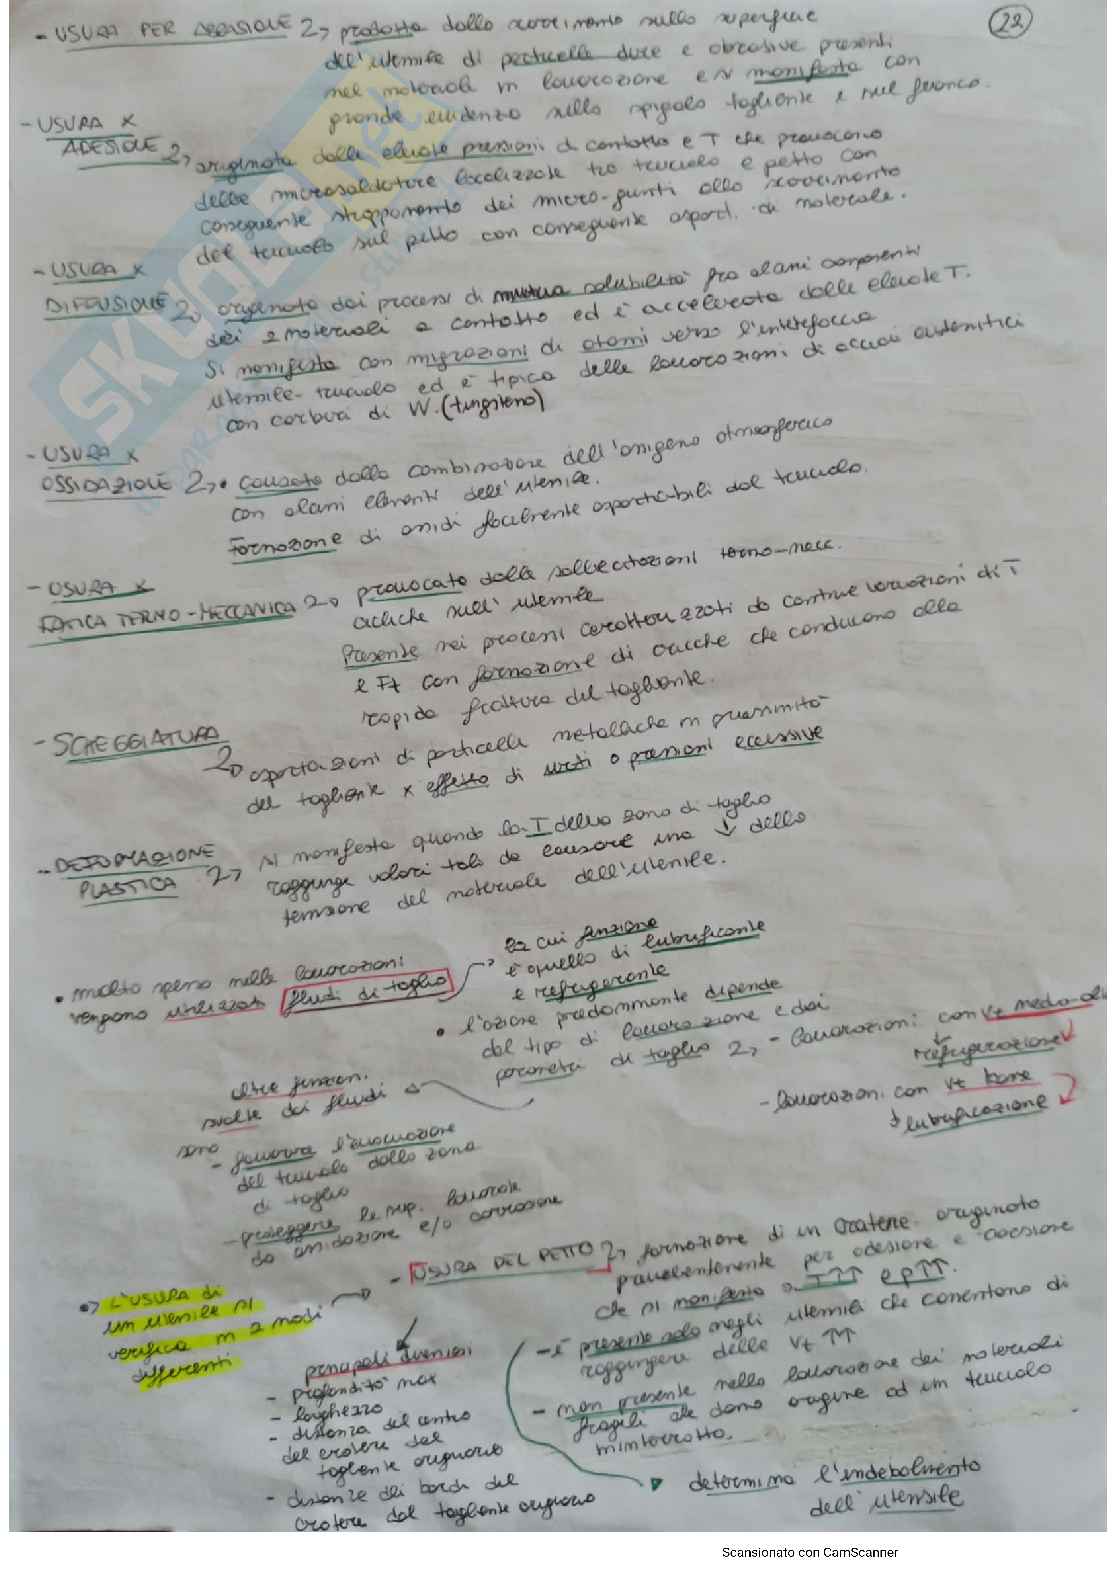 22
- USURA PER ABRASIONE → prodotta dallo scorrimento sulla superficie
dell'utensile di particelle dure e abrasive presenti
nel materiale in lavorazione e si manifesta con
grande evidenza sullo spigolo tagliente e sul fianco.
- USURA x
ADESIONE → originata dalle elevate pressioni di contatto e T che provocano
delle microsaldature localizzate tra truciolo e petto con
conseguente strappamento dei micro-punti allo scorrimento
del truciolo sul petto con conseguente asport. di materiale.
- USURA x
DIFFUSIONE → originata dai processi di mutua solubilità fra alcuni componenti
dei 2 materiali a contatto ed è accelerata dalle elevate T.
Si manifesta con migrazioni di atomi verso l'interfaccia
utensile-truciolo ed è tipica delle lavorazioni di acciai austenitici
con carburi di W. (tungsteno)
- USURA x
OSSIDAZIONE → • causata dalla combinazione dell'ossigeno atmosferico
con alcuni elementi dell'utensile.
Formazione di ossidi facilmente asportabili dal truciolo.
- USURA x
FATICA TERMO-MECCANICA → provocata dalle sollecitazioni termo-mecc.
cicliche sull'utensile
Presente nei processi caratterizzati da continue variazioni di T
e Ft con formazione di cricche che conducono alla
rapida frattura del tagliente.
- SCHEGGIATURA
→ asportazioni di particelle metalliche in prossimità
del tagliente x effetto di urti o pressioni eccessive
- DEFORMAZIONE
PLASTICA → si manifesta quando la T della zona di taglio
raggiunge valori tali da causare una ↓ della
tensione del materiale dell'utensile.
• molto spesso nelle lavorazioni
vengono utilizzati fluidi di taglio
la cui funzione
è quella di lubrificante
e refrigerante
• l'azione predominante dipende
dal tipo di lavorazione e dai
parametri di taglio → - lavorazioni con Vt medio-al
↓
refrigerazione
- lavorazioni con Vt basse
↓ lubrificazione
altre funzion.
svolte dai fluidi
sono
- favorire l'evacuazione
del truciolo dalla zona
di taglio
- proteggere le sup. lavorate
da ossidazione e/o corrosione
•> L'USURA di
un utensile si
verifica in 2 modi
differenti
- USURA DEL PETTO → formazione di un cratere originato
prevalentemente per adesione e
che si manifesta a T↑↑ e p↑↑.
- è presente solo negli utensili che consentono di
raggiungere delle Vt ↑↑
- non presente nella lavorazione dei materiali
fragili che danno origine ad un truciolo
ininterrotto.
determina l'indebolimento
dell'utensile
principali dimensioni
- profondità max
- larghezza
- distanza del centro
del cratere dal
tagliente originario
- distanze dei bordi del
cratere dal tagliente originario
SKUOLA.net
Scansionato con CamScanner